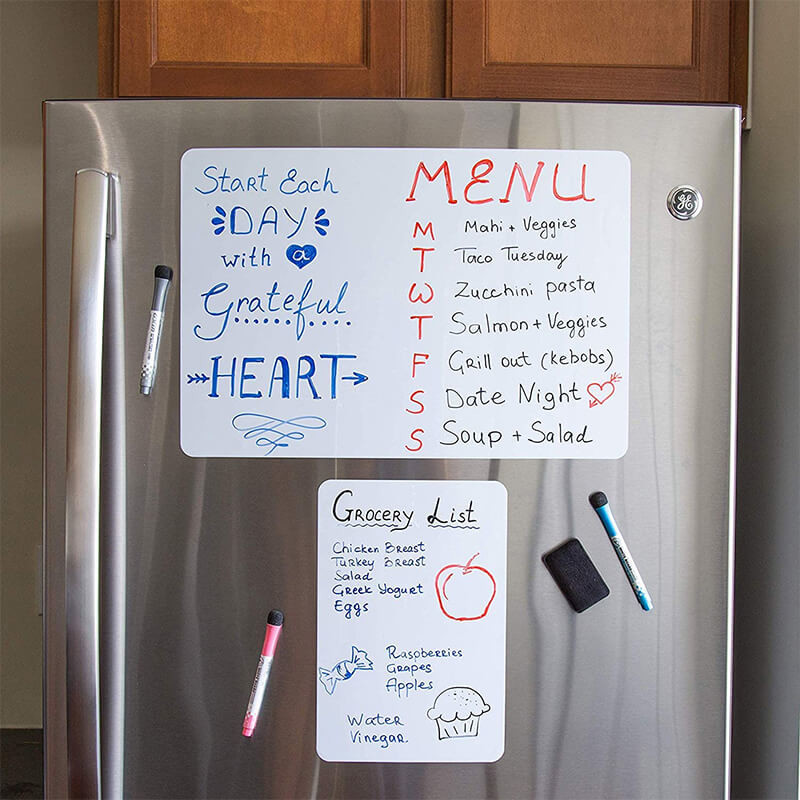 Start Each
DAY
with a
Grateful
HEART
MENU
M Mahi + Veggies
T Taco Tuesday
W Zucchini pasta
T Salmon + Veggies
F Grill out (kebobs)
S Date Night
S Soup + Salad
GE
Grocery List
Chicken Breast
Turkey Breast
Salad
Greek Yogurt
Eggs
Raspberries
Grapes
Apples
Water
Vinegar